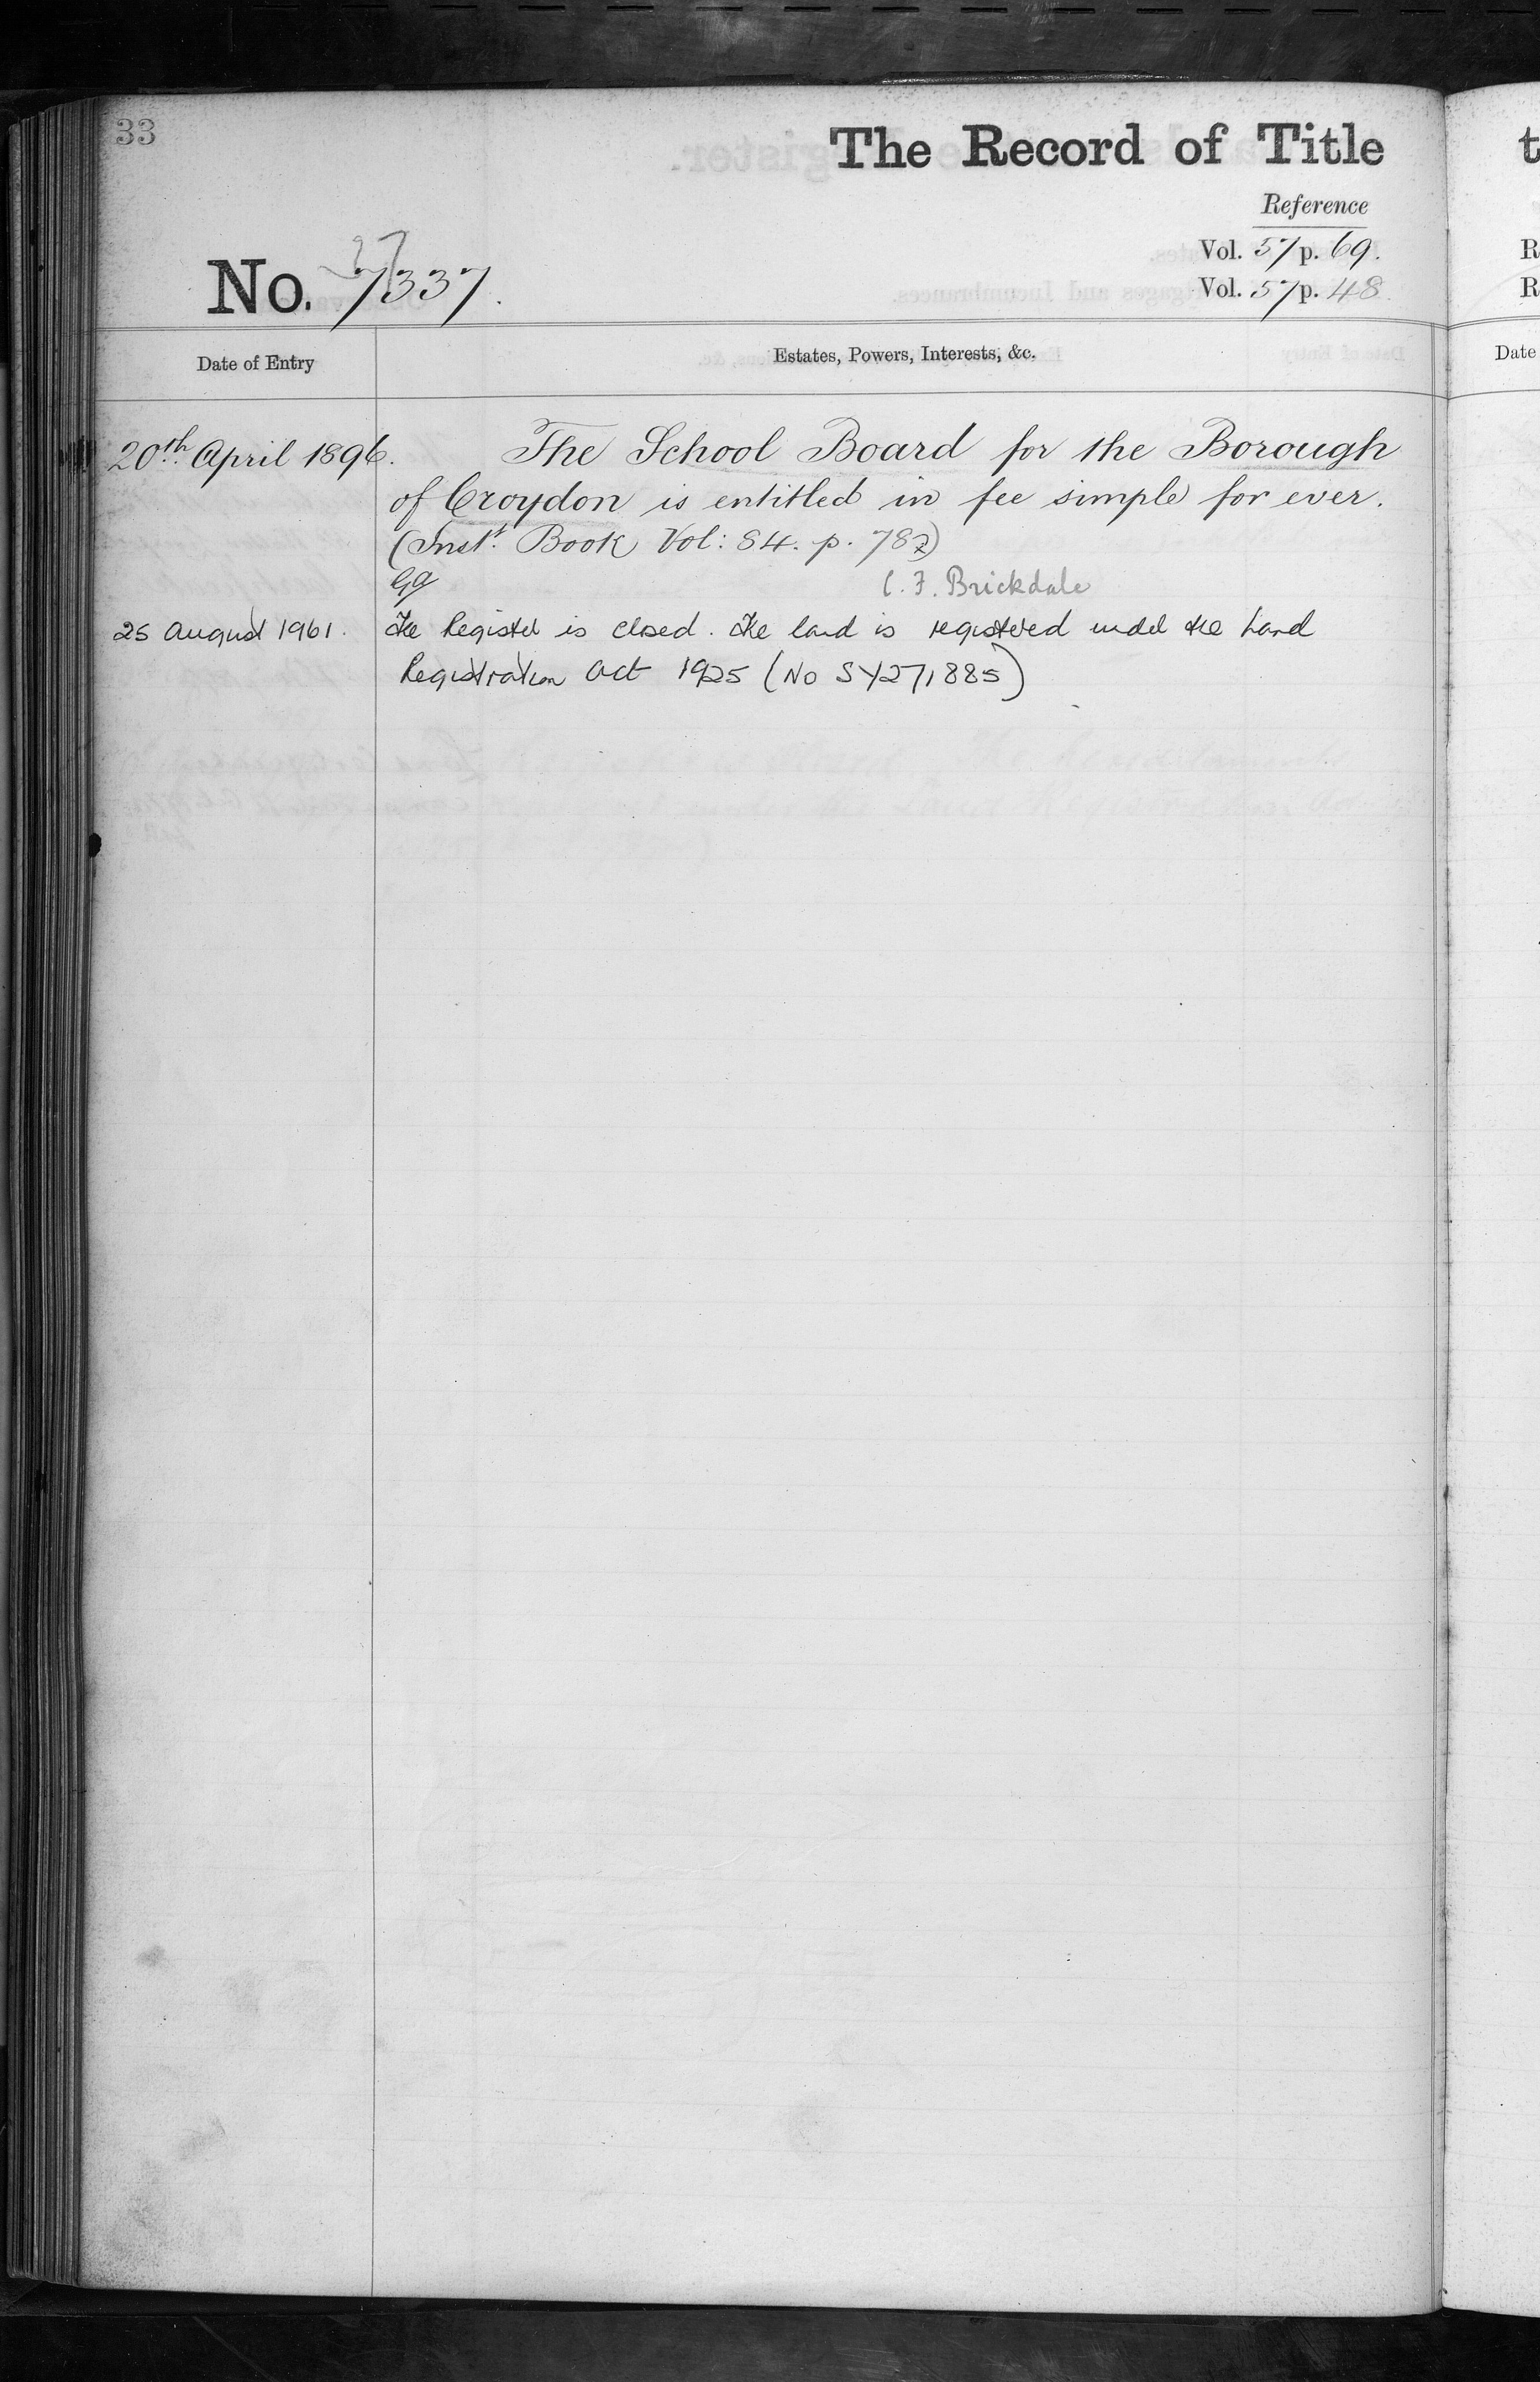 33
The Record of Title
Reference
Vol. 57 p. 69.
No. 7337.
Vol. 57 p. 48.
Date of Entry
Estates, Powers, Interests, &c.
20th April 1896.
The School Board for the Borough
of Croydon is entitled in fee simple for ever.
(Inst. Book Vol: 84. p. 787)
C. F. Brickdale
25 August 1961.
The Register is closed. The land is registered under the Land
Registration Act 1925 (No SY271885)
Date